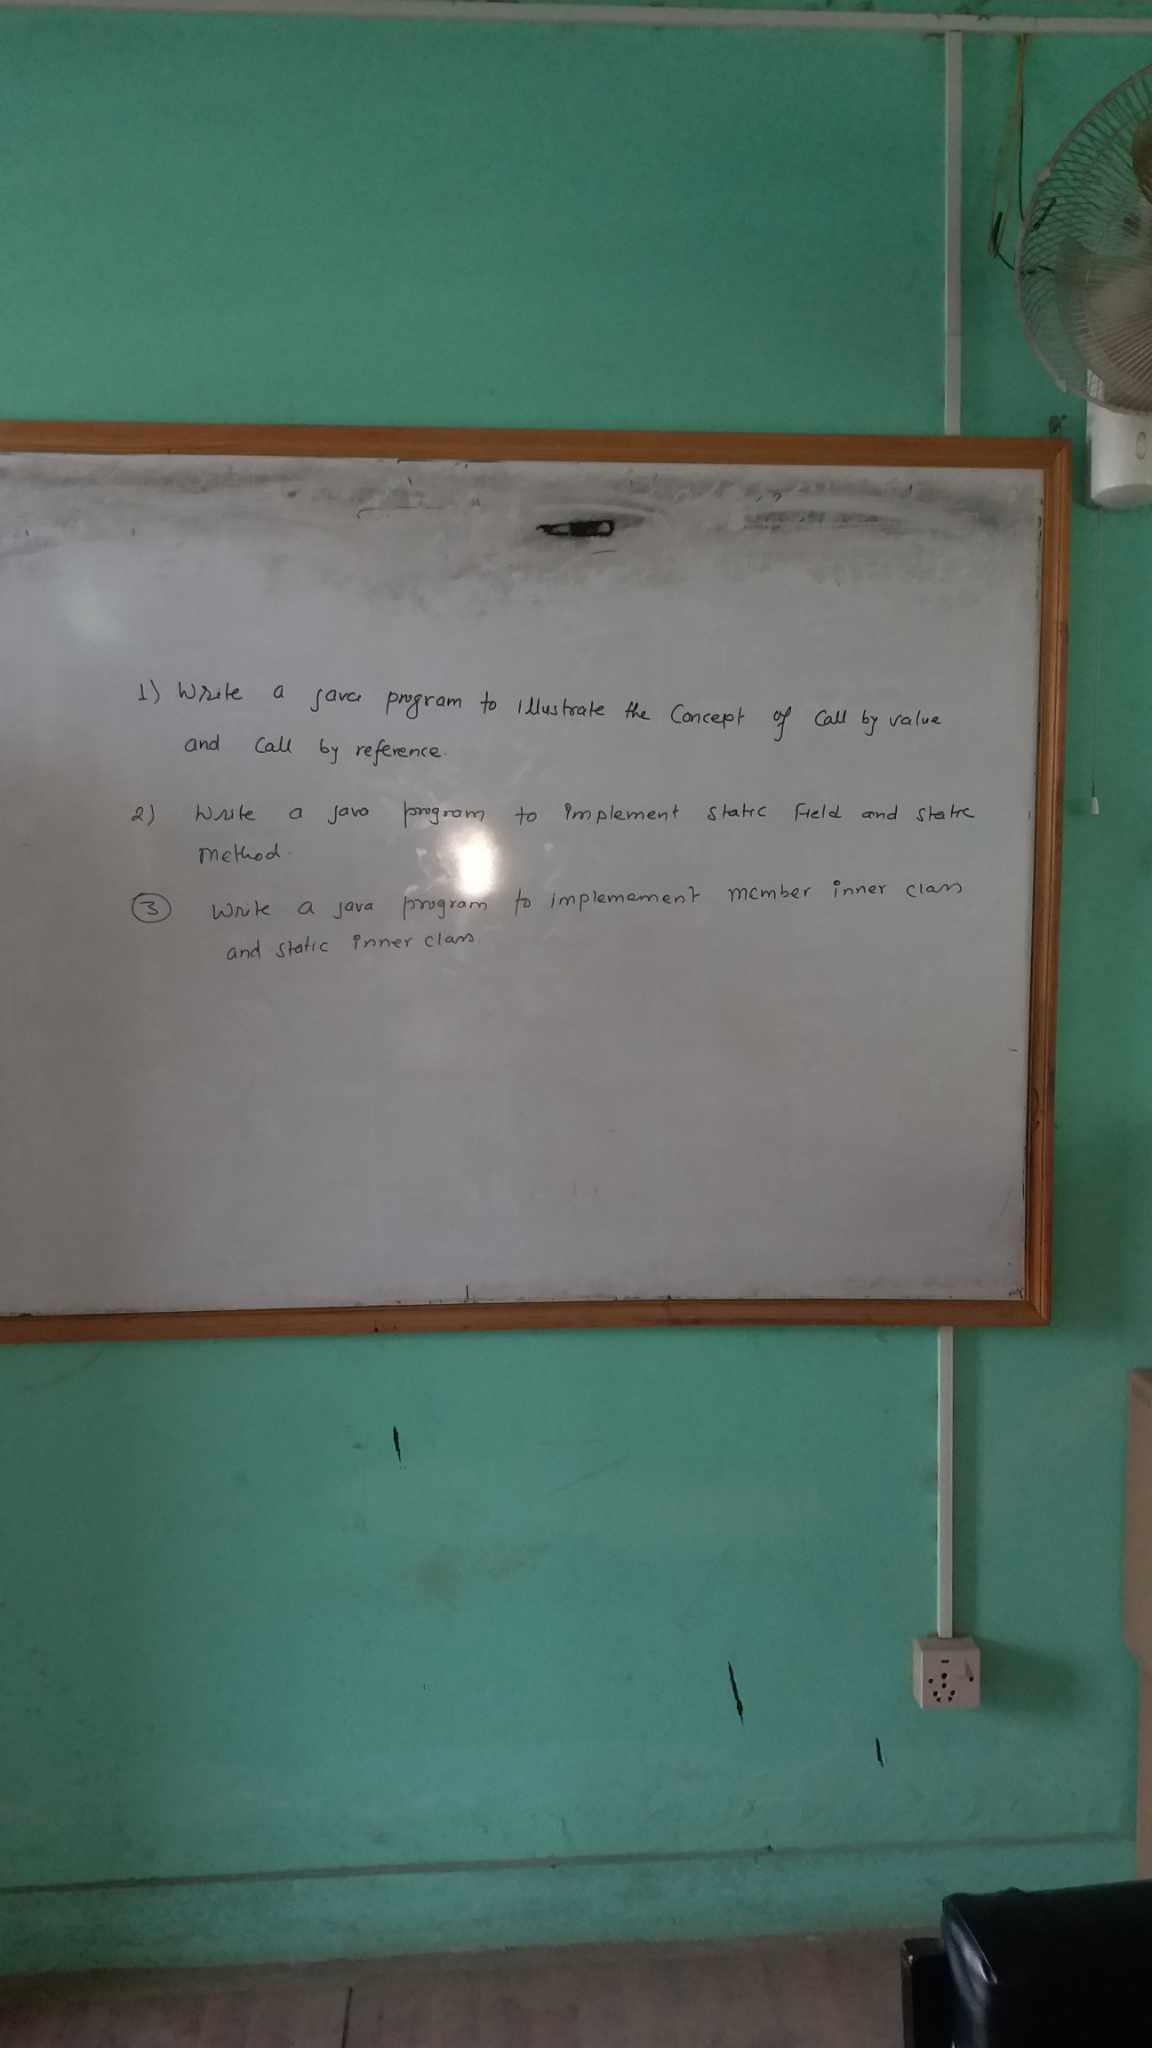 1) Write a java program to illustrate the Concept of Call by value
and Call by reference.
2) Write a java program to implement static field and static
method.
3 Write a java program to implemement member inner class
and static inner class.